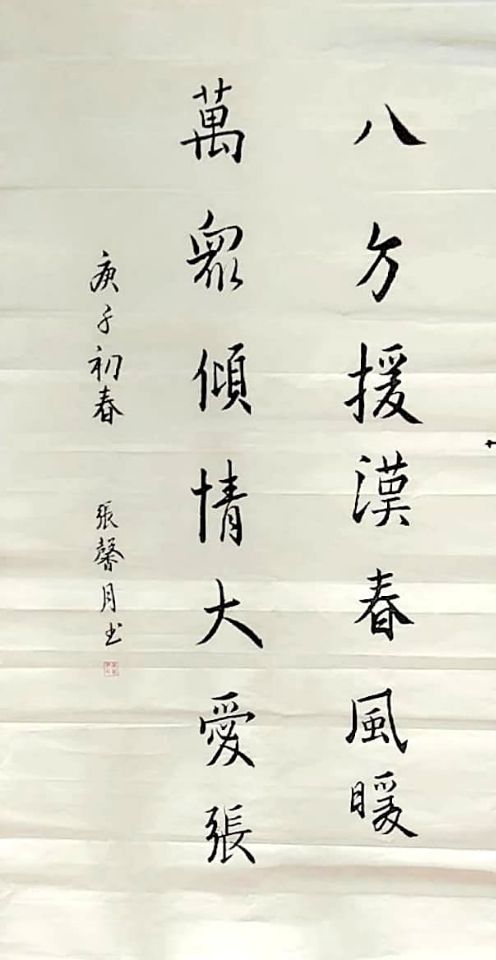 八方援漢春風暖
萬眾傾情大愛張
庚子初春 張馨月书